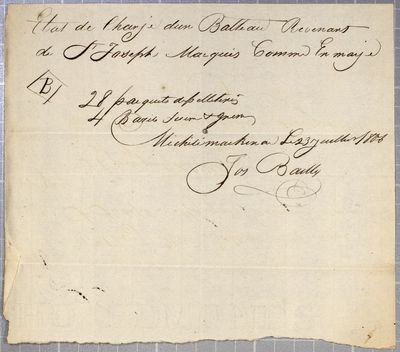 Etat de Charje d'un Batteau Revenant
de St Joseph Marquis Comme En marje
B
28 paquets de pelletries
4 Barils &
Michilimackinac Le 23 juillet 1806
Jos Bailly